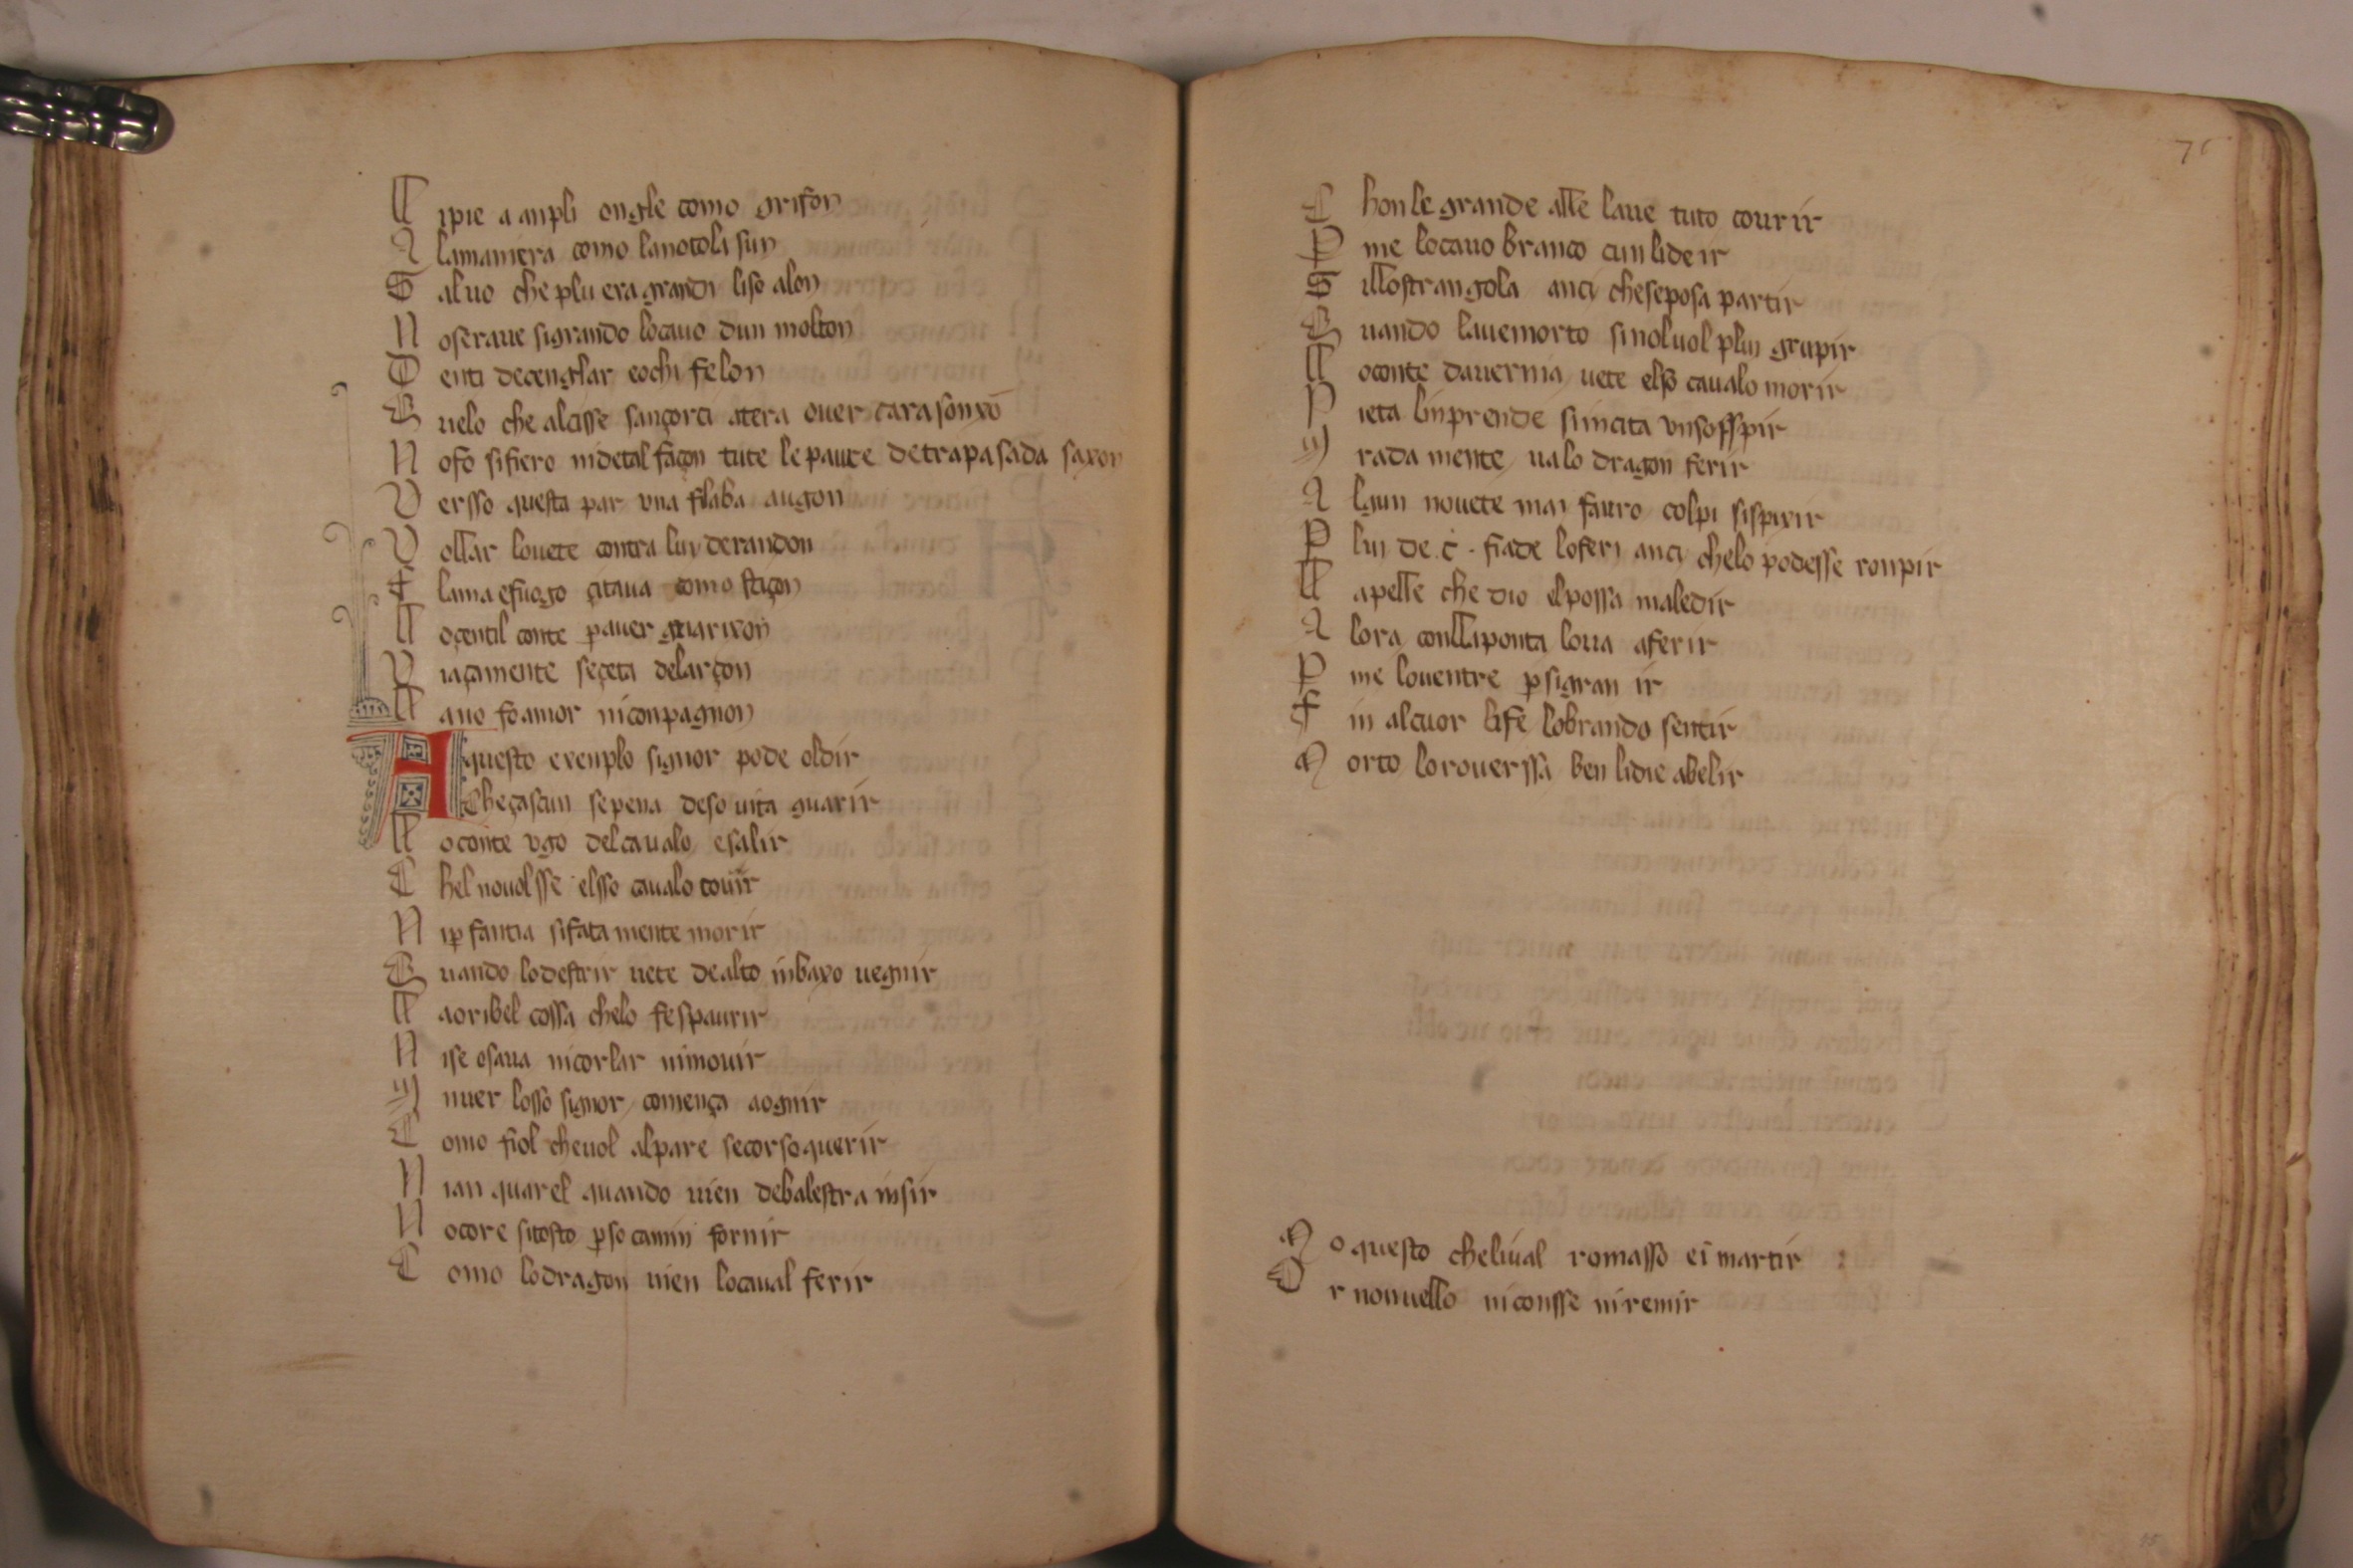 L ipie a anpli ongle como grifon
A lamaniera como lanotola sun
S aluo che plu era grandi liso alon
N oserave sigrando locavo dun molton
D enti decenglar eochi felon
Q uelo che alcisse sançorci atera over carasonxō
N ofo sifiero nidetal façon tute le paure detrapasada saxon
V ersso questa par una fílaba augon
V ollar lovete contra luy derandon
F lama efuogo çitava como stiçon
L oçentil conte p̱aver guarixon
V iaçamente seçeta delarçon
L avo fo amor niconpagnon
A questo exenplo signor pode oldir
Cheçascun sepena deso vita guarir
L oconte ugo delcavalo esalir
C hel novolsse elsso cavalo couir
N ip̱ fantia sifata mente morir
Q uando lodestrir vete dealto inbaxo vegnir
L aoribel cossa chelo fespaurir
N ise osava nicorlar nimovir
M aver losso signor comença aognir
C omo fiol chevol alpare secorsoquerir
N ian quarel quando vien debalestra insir
N ocore sitosto p̱so camin fornir
C omo lodragon vien locaval ferir
C honle grande alle lave tuto courir
P me locavo branco cun lideir
S illostrangola anci cheseposa partir
Q uando lavemorto sinolvol pluy grupir
L oconte davernia vete elsō cavalo morir
P ieta linprende simcita unsosspir
I rada mente valo dragon ferir
A lgun novete mai fauro colpi sispixir
P luy de .c. fiade loferi anci chelo podesse ronpir
L apelle che dio elpossa maledir
A lora conllaponta lova aferir
P me loventre p̱sigran ir
F in alcuor life lobrando sentir
M orto loroverssa ben lidie abelir
M o questo chelival romasso ei martir
O r nonvello niconsse niremir